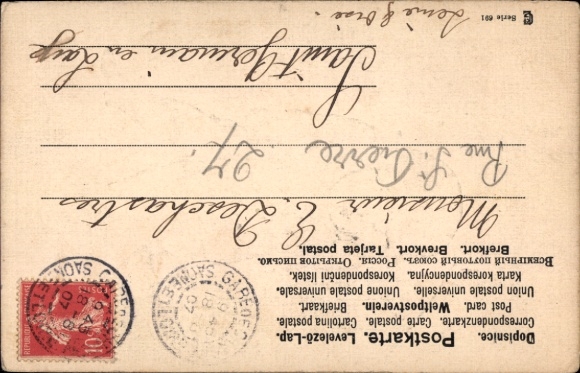 Dopisnice. Postkarte. Levelező-Lap.
Correspondenzkarte. Carte postale. Cartolina postale.
Post card. Weltpostverein. Briefkaart.
Union postale universelle. Unione postale universale.
Karta korespondencyjna. Korespondenční lístek.
Всемірный почтовый союзъ. Россія. Открытое письмо.
Brefkort. Brevkort. Tarjeta postal.
Monsieur E. Deschastres
27. Rue St. Pierre
Saint Germain en Laye
Seine & Oise.
Serie 691